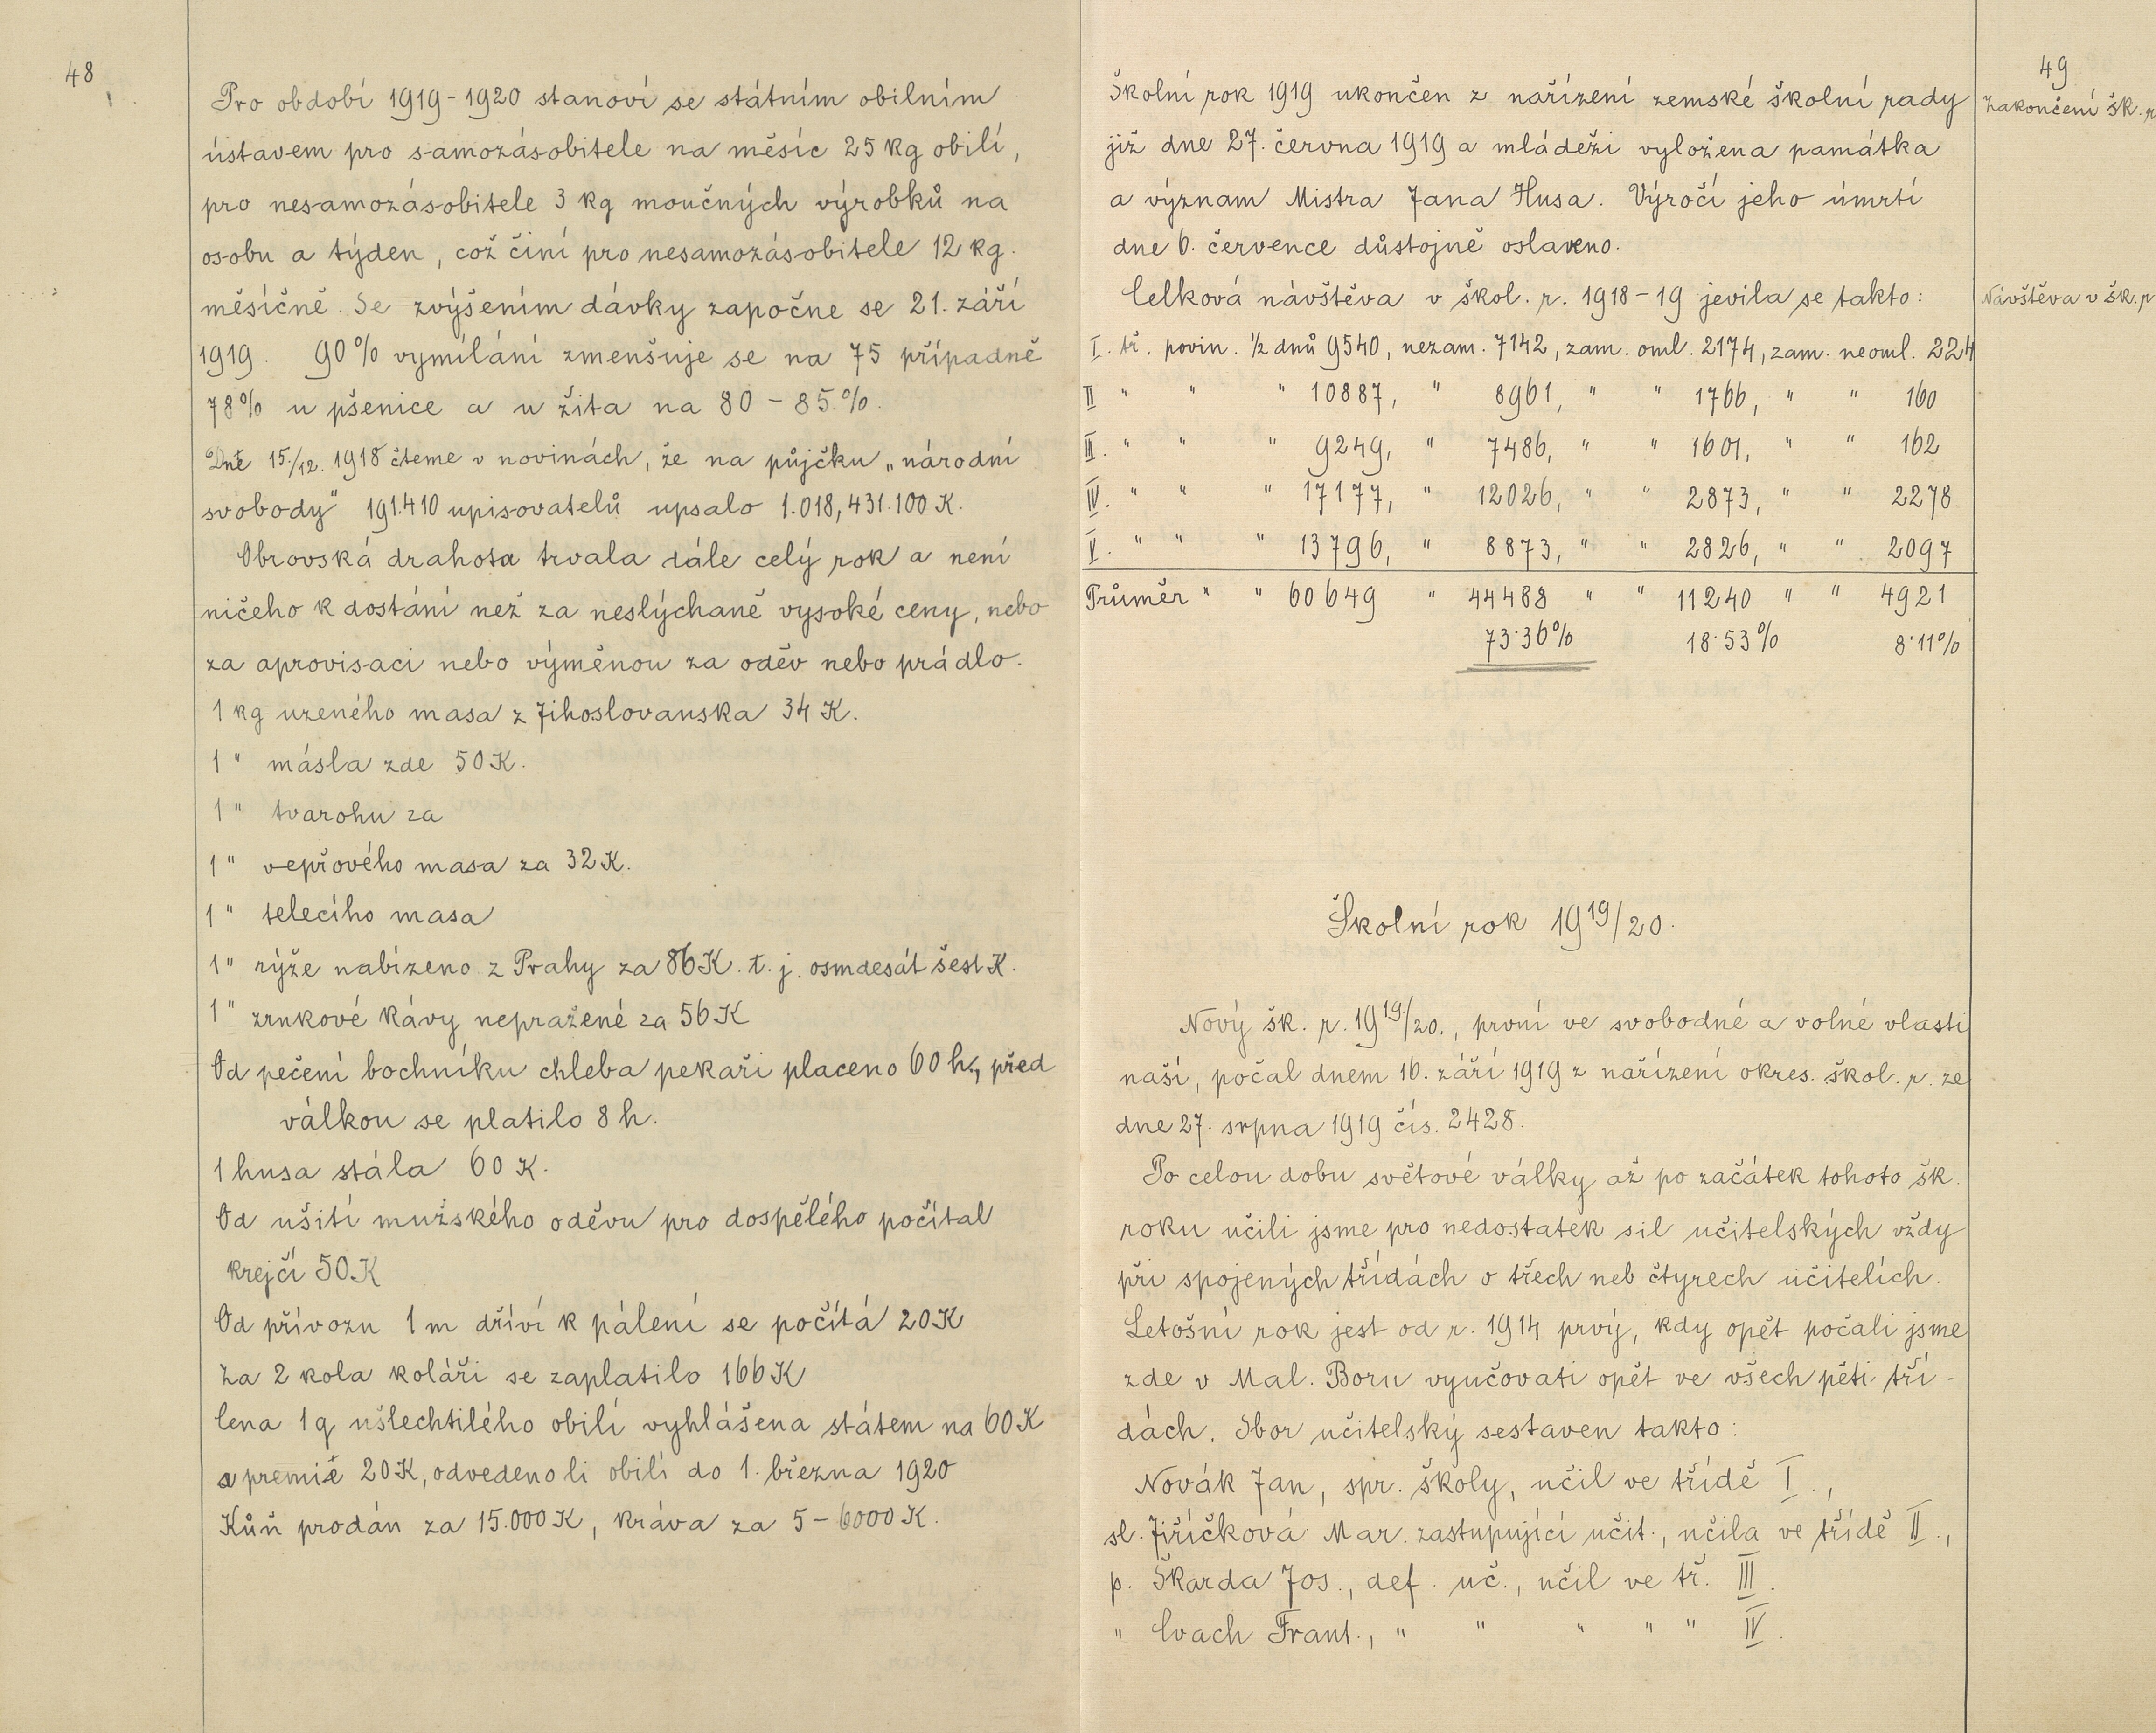 48
Pro období 1919-1920 stanoví se státním obilním
ústavem pro samozásobitele na měsíc 25 kg obilí,
pro nesamozásobitele 3 kg moučných výrobků na
osobu a týden, což činí pro nesamozásobitele 12 kg.
měsíčně. Se zvýšením dávky započne se 21. září
1919. 90% vymílání zmenšuje se na 75 případně
78% u pšenice a u žita na 80 - 85%.
Dne 15./12. 1918 čteme v novinách, že na půjčku „národní
svobody" 191.410 upisovatelů upsalo 1.018,431.100 K.
Obrovská drahota trvala dále celý rok a není
ničeho k dostání než za neslýchaně vysoké ceny, nebo
za aprovisaci nebo výměnou za oděv nebo prádlo.
1 kg uzeného masa z Jihoslovanska 34 K.
1 " másla zde 50 K.
1 " tvarohu za
1 " vepřového masa za 32 K.
1 " telecího masa
1 " rýže nabízeno z Prahy za 86 K. t. j. osmdesát šest K.
1 " zrnkové kávy nepražené za 56 K
Od pečení bochníku chleba pekaři placeno 60 h., před
válkou se platilo 8 h.
1 husa stála 60 K.
Od ušití mužského oděvu pro dospělého počítal
krejčí 50 K
Od přívozu 1 m dříví k pálení se počítá 20 K
Za 2 kola koláři se zaplatilo 166 K
Cena 1 q ušlechtilého obilí vyhlášena státem na 60 K
a premie 20 K, odvedeno li obilí do 1. března 1920
Kůň prodán za 15.000 K, kráva za 5 - 6000 K.
49
Školní rok 1919 ukončen z nařízení zemské školní rady
Zakončení šk. r
již dne 27. června 1919 a mládeži vyložena památka
a význam Mistra Jana Husa. Výročí jeho úmrtí
dne 6. července důstojně oslaveno.
Celková návštěva v škol. r. 1918-19 jevila se takto:
Návštěva v šk. r
I. tř. povin. 1/2 dnů 9540, nezam. 7142, zam. oml. 2174, zam. neoml. 224
II " " " 10887, " 8961, " " 1766, " " 160
III. " " " 9249, " 7486, " " 1601, " " 162
IV. " " " 17177, " 12026, " " 2873, " " 2278
V. " " " 13796, " 8873, " " 2826, " " 2097
Průměr " " 60649 " 44488 " " 11240 " " 4921
73·36% 18·53% 8·11%
Školní rok 1919/20.
Nový šk. r. 1919/20., první ve svobodné a volné vlasti
naší, počal dnem 16. září 1919 z nařízení okres. škol. r. ze
dne 27. srpna 1919 čís. 2428.
Po celou dobu světové války až po začátek tohoto šk.
roku učili jsme pro nedostatek sil učitelských vždy
při spojených třídách o třech neb čtyrech učitelích.
Letošní rok jest od r. 1914 prvý, kdy opět počali jsme
zde v Mal. Boru vyučovati opět ve všech pěti tří-
dách. Sbor učitelský sestaven takto:
Novák Jan, spr. školy, učil ve třídě I.,
sl. Jiříčková Mar. zastupující učit., učila ve třídě II.,
p. Škarda Jos., def. uč., učil ve tř. III.
" Cvach Frant., " " " " " IV.